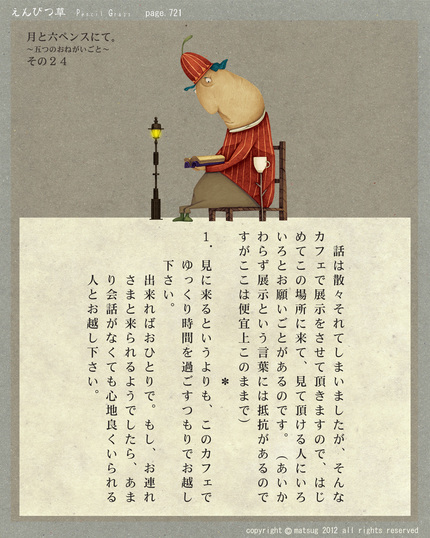 えんぴつ草 Pencil Grass page.721
月と六ペンスにて。
~五つのおねがいごと~
その24
話は散々それてしまいましたが、そんな
カフェで展示をさせて頂きますので、はじ
めてこの場所に来て、見て頂ける人にいろ
いろとお願いごとがあるのです。(あいか
わらず展示という言葉には抵抗があるので
すがここは便宜上このままで)
*
1.見に来るというよりも、このカフェで
ゆっくり時間を過ごすつもりでお越し
下さい。
出来ればおひとりで。もし、お連れ
さまと来られるようでしたら、あま
り会話がなくても心地良くいられる
人とお越し下さい。
copyright ©matsug 2012 all rights reserved